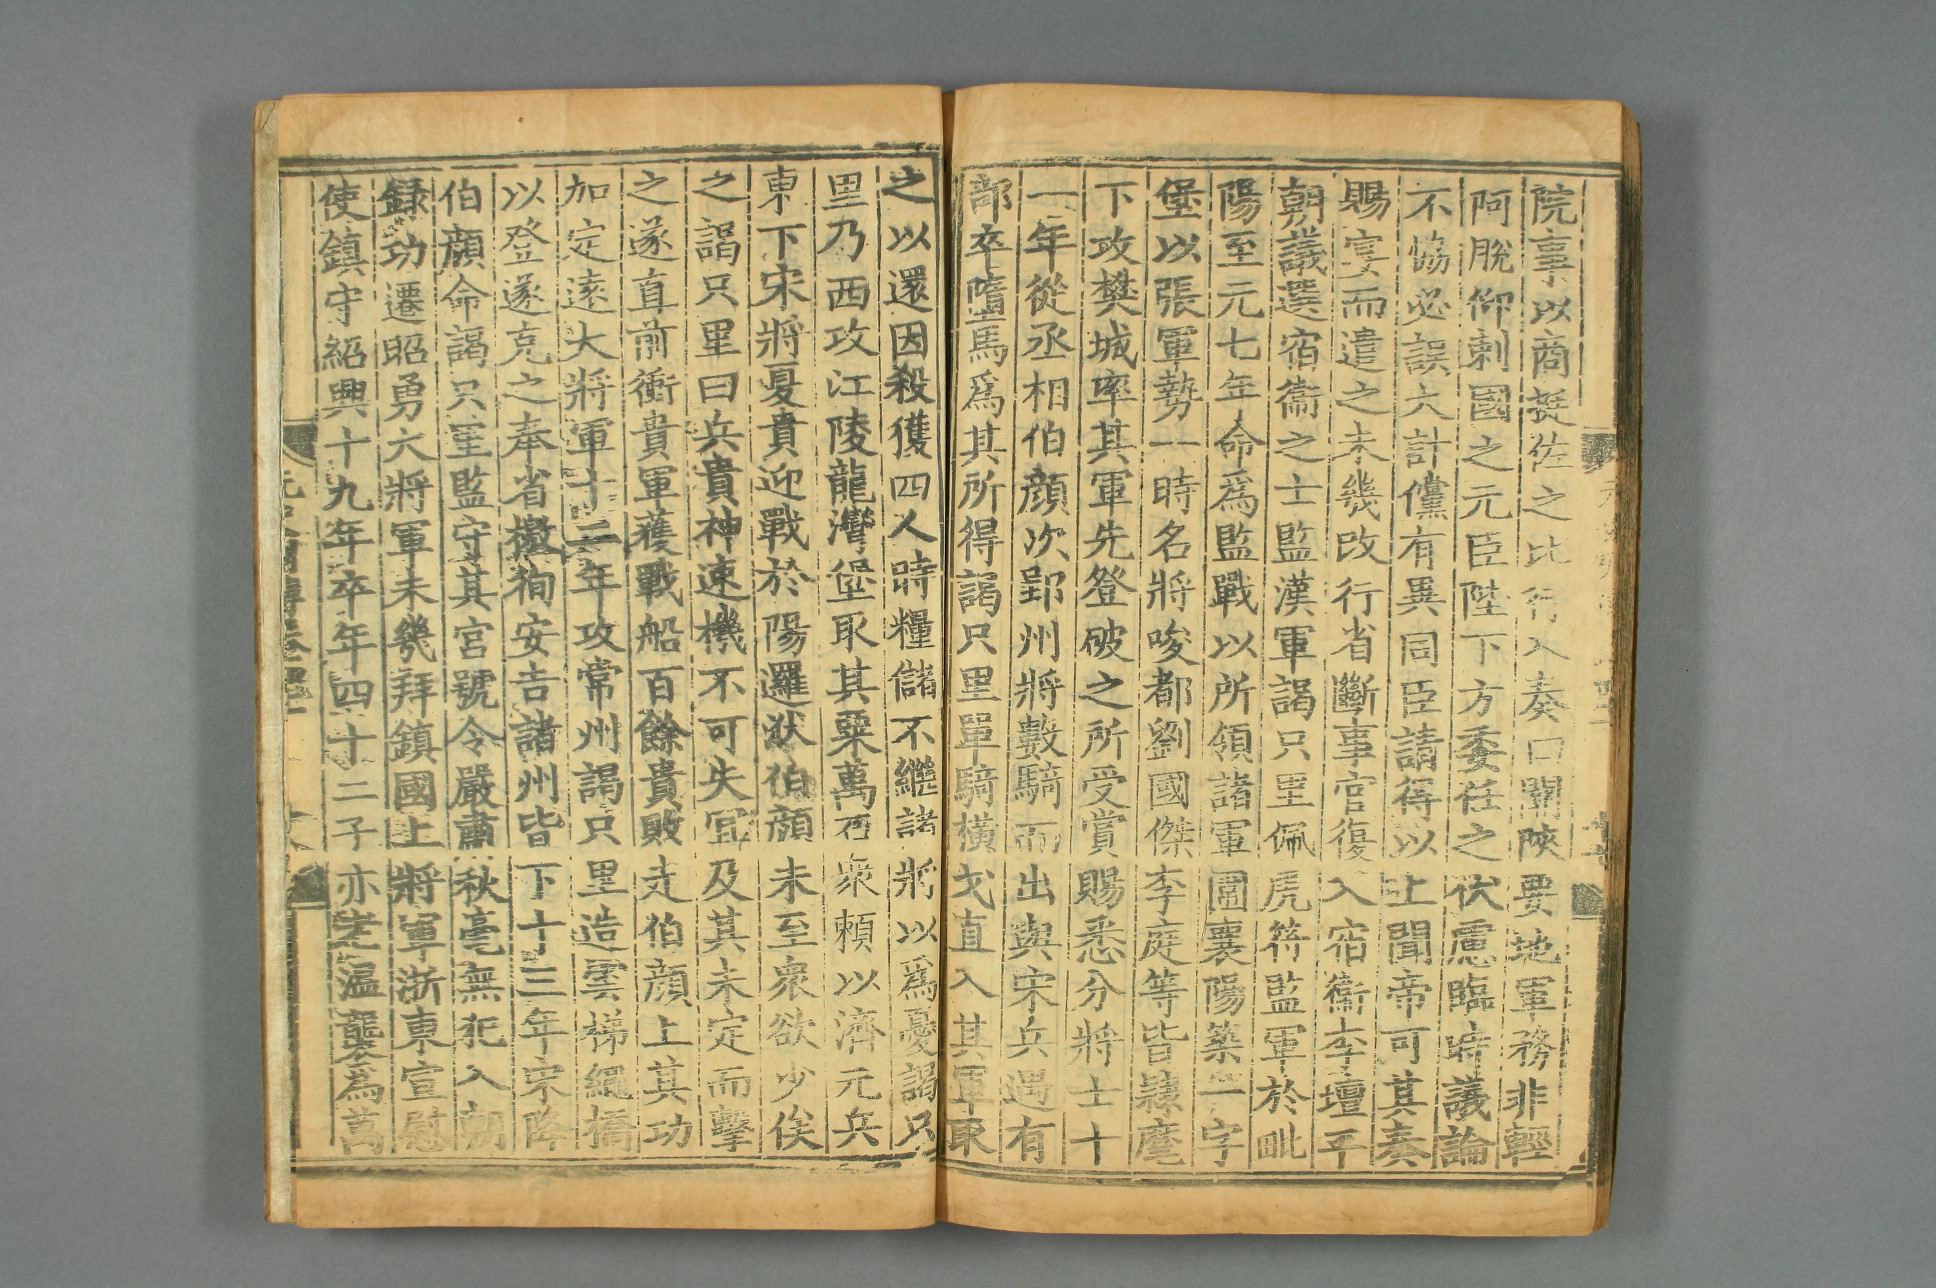 院事以商挺佐之比行入奏曰關陝要地軍務非輕
阿脫仰剌國之元臣陛下方委任之伏慮臨時議論
不恊必誤大計儻有異同臣請得以上聞帝可其奏
賜宴而遣之未幾改行省斷事官復入宿衞李壇平
朝議選宿衞之士監漢軍謁只里佩虎符監軍於毗
陽至元七年命爲監戰以所領諸軍圍襄陽築一字
堡以張軍勢一時名將唆都劉國傑李庭等皆隷麾
下攻樊城率其軍先登破之所受賞賜悉分將士十
一年從丞相伯顔次郢州將數騎而出與宋兵遇有
部卒墮馬爲其所得謁只里單騎橫戈直入其軍取
之以還因殺獲四人時糧儲不繼諸將以爲憂謁只
里乃西攻江陵龍灣堡取其粟萬石衆頼以濟元兵
東下宋將夏貴迎戰於陽邏洑伯顔未至衆欲少俟
之謁只里曰兵貴神速機不可失冝及其未定而擊
之遂直前衝貴軍獲戰船百餘貴敗走伯顔上其功
加定遠大將軍十二年攻常州謁只里造雲梯繩橋
以登遂克之奉省檄徇安吉諸州皆下十三年宋降
伯顔命謁只里監守其宮號令嚴肅秋毫無犯入朝
録功遷昭勇大將軍未幾拜鎮國上將軍浙東宣慰
使鎮守紹興十九年卒年四十二子亦老溫襲爲萬